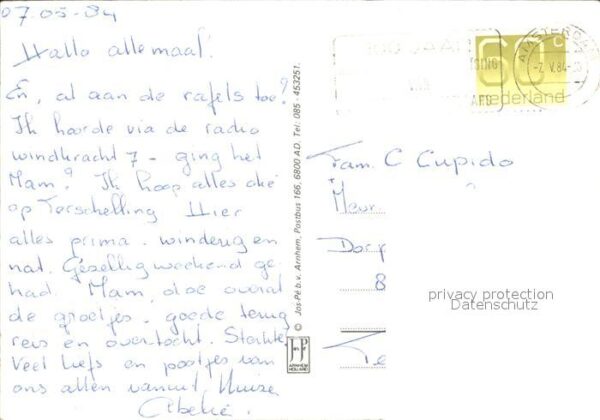 07-05-84
Hallo allemaal!
En, al aan de rafels toe?
Ik hoorde via de radio
windkracht 7 - ging het
Mam? Ik hoop alles oké
op Terschelling Hier
alles prima. winderig en
nat. Gezellig weekend ge-
had. Mam, doe overal
de groetjes. goede terug
reis en overtocht. Sterkte.
Veel liefs en pootjes van
ons allen vanuit Huize
© Jos-Pé b.v. Arnhem, Postbus 166, 6800 AD. Tel: 085 - 453251.
JosPé
ARNHEM
HOLLAND
100 JAAR
AMSTERDAM
-7.V.84
60 c
nederland
Fam. C Cupido
Mevr.
Dorp
8
Te
privacy protection
Datenschutz